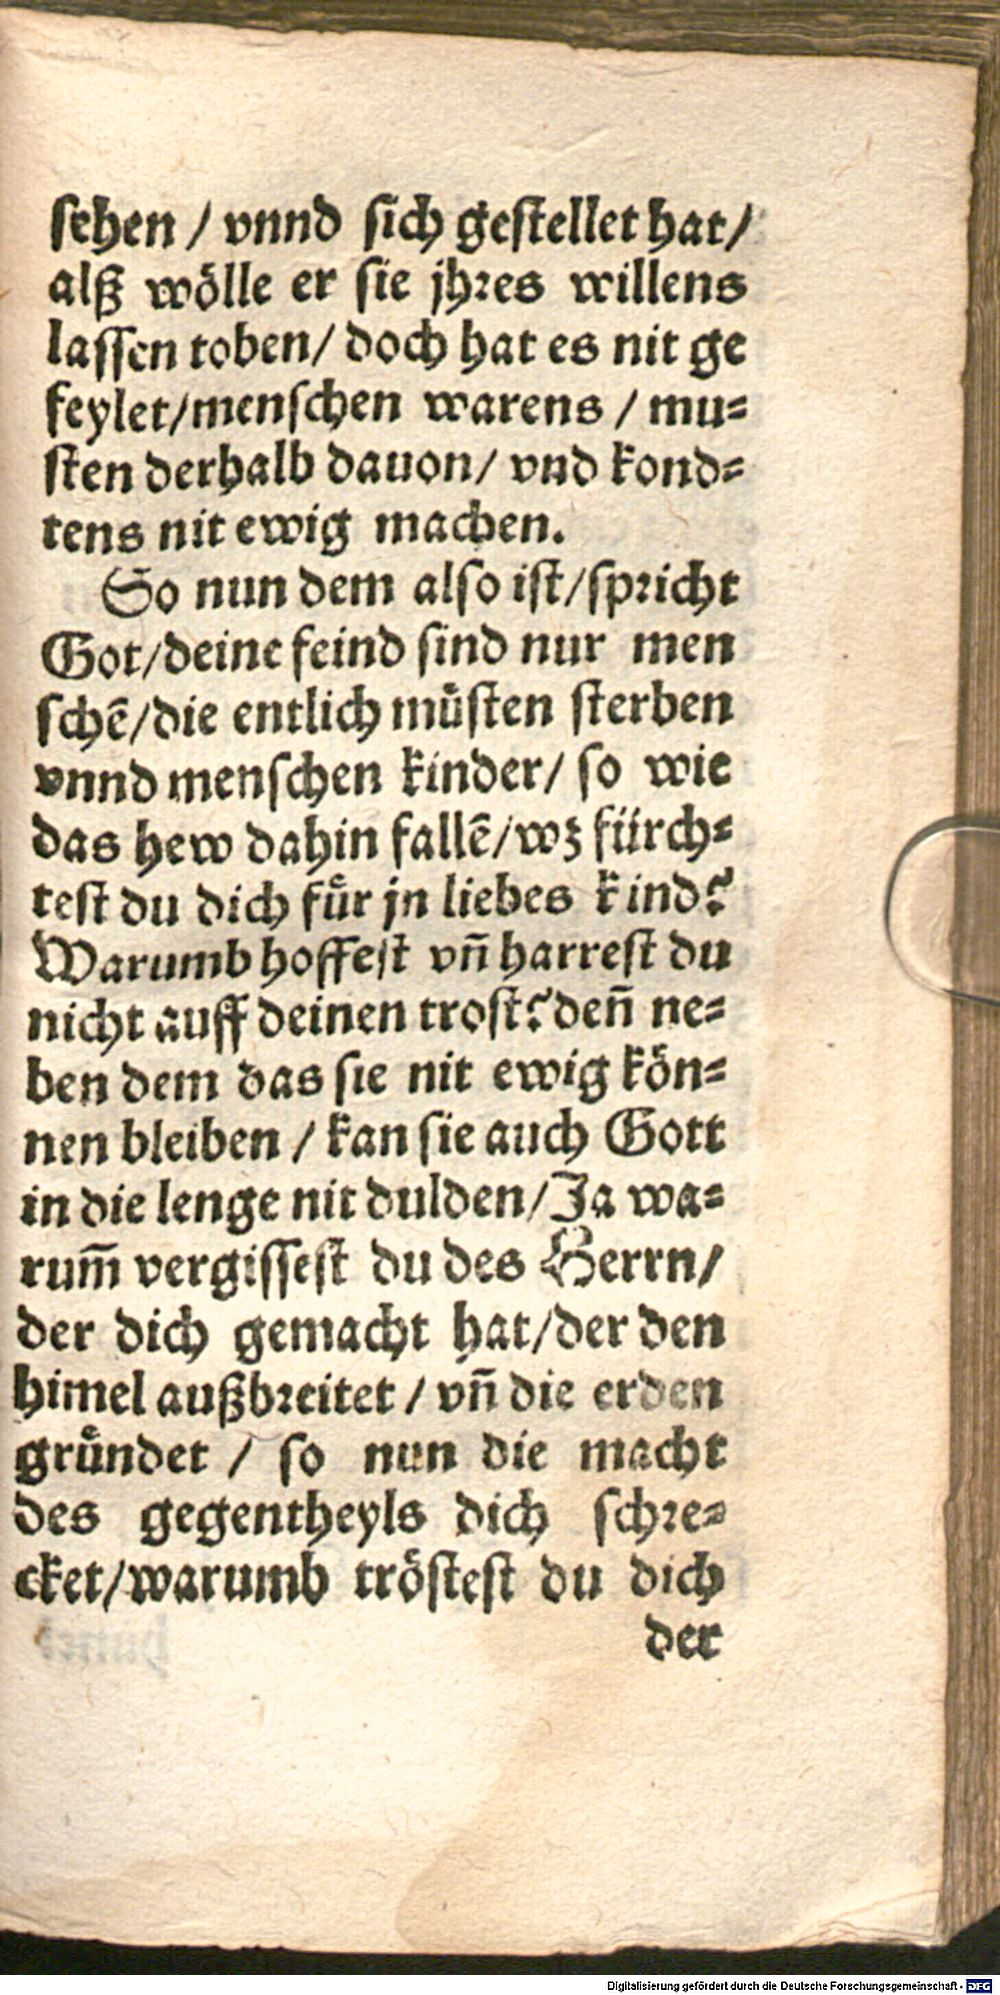 sehen / vnnd sich gestellet hat /
alß wölle er sie jhres willens
lassen toben / doch hat es nit ge
feylet / menschen warens / mu⸗
sten derhalb dauon / vnd kond⸗
tens nit ewig machen.
So nun dem also ist / spricht
Got / deine feind sind nur men
schē / die entlich müsten sterben
vnnd menschen kinder / so wie
das hew dahin fallē / wz fürch⸗
test du dich für jn liebes kind?
Warumb hoffest vn̄ harrest du
nicht auff deinen trost? den̄ ne⸗
ben dem das sie nit ewig kön⸗
nen bleiben / kan sie auch Gott
in die lenge nit dulden / Ja wa⸗
rum̄ vergissest du des Herrn /
der dich gemacht hat / der den
himel außbreitet / vn̄ die erden
gründet / so nun die macht
des gegentheyls dich schre⸗
cket / warumb tröstest du dich
der
Digitalisierung gefördert durch die Deutsche Forschungsgemeinschaft - DFG